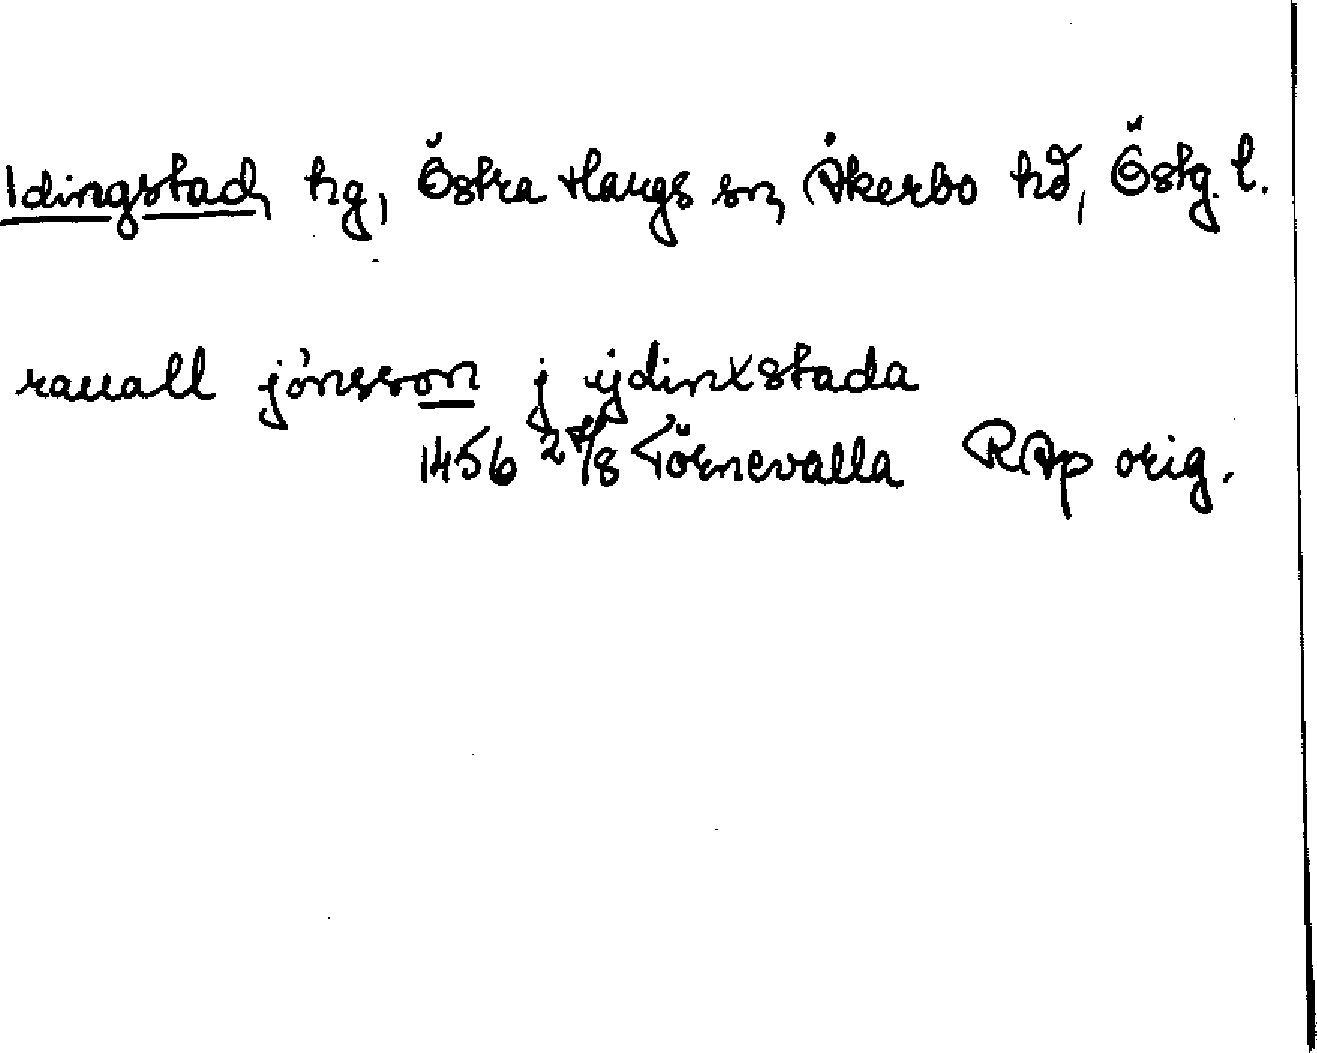 Idingstad, hg, Östra Hargs sn, Åkerbo hd, Östg. l.
rauall jónsson j ÿdinxstada
1456 24/8 Törnevalla RAp orig.